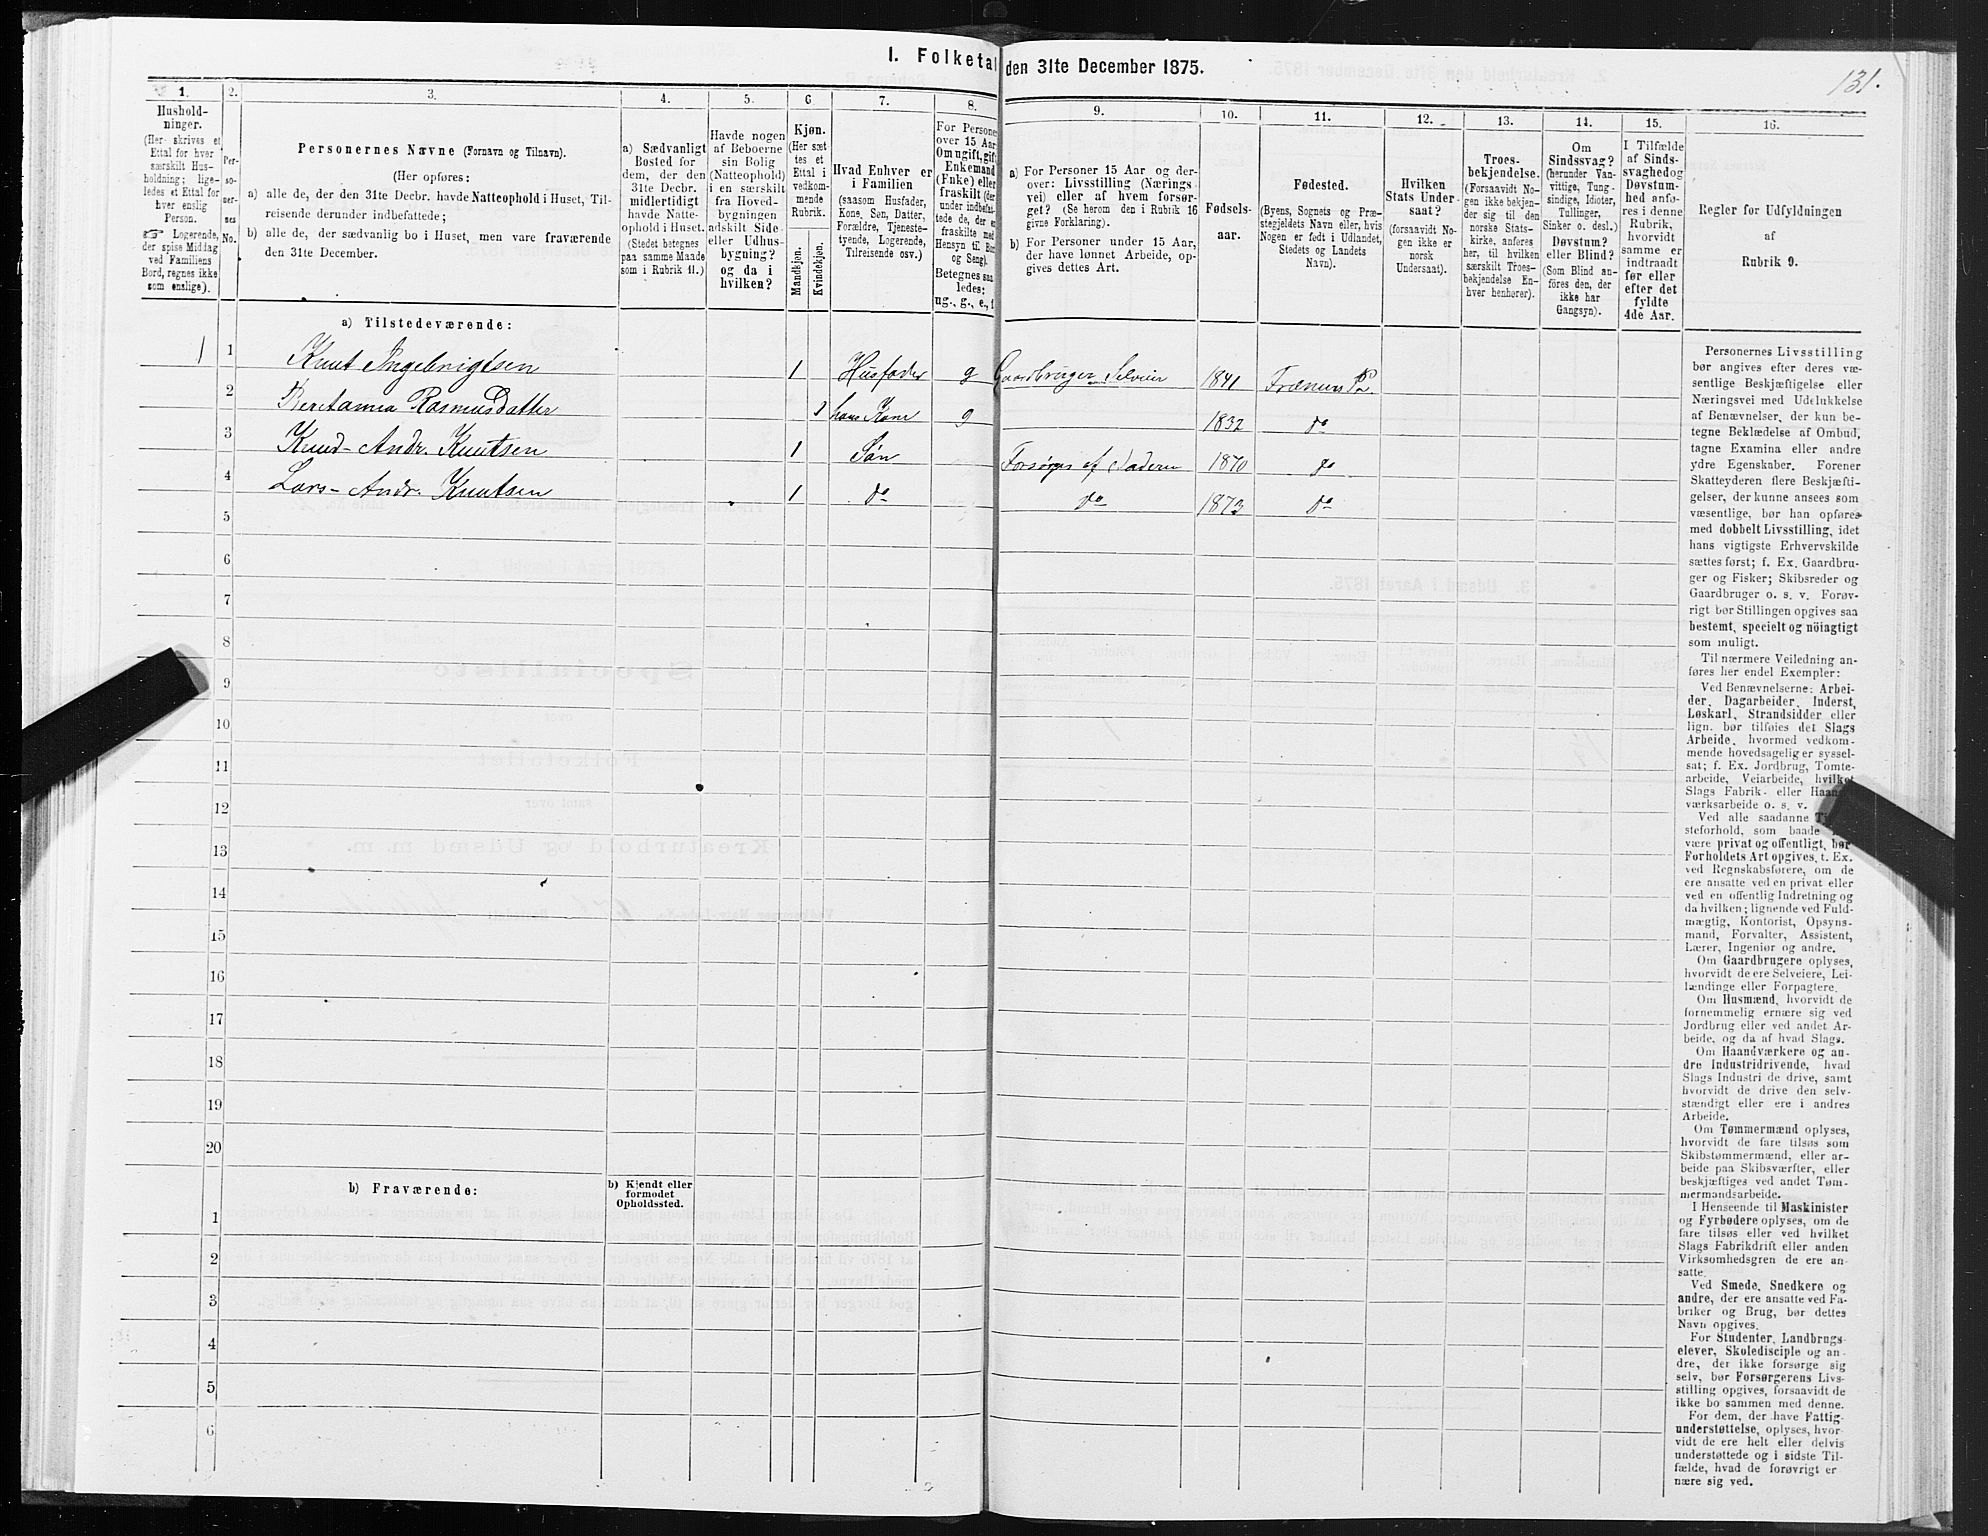 I. Folketal
den 31te December 1875.
131.
1.
Hushold-
ninger.
(Her skrives et
Ettal for hver
særskilt Hus-
holdning; lige-
ledes et Ettal for
hver enslig
Person.
Logerende,
der spise Middag
ved Familiens
Bord, regnes ikke
som enslige).
2.
Per-
so-
ner-
nes
No.
3.
Personernes Nævne (Fornavn og Tilnavn).
(Her opføres:
a) alle de, der den 31te Decbr. havde Natteophold i Huset, Til-
reisende derunder indbefattede;
b) alle de, der sædvanlig bo i Huset, men vare fraværende
den 31te December.
4.
a) Sædvanligt
Bosted for
dem, der den
31te Decbr.
midlertidigt
havde Natte-
ophold i Huset.
(Stedet betegnes
paa samme Maade
som i Rubrik 11.)
5.
Havde nogen
af Beboerne
sin Bolig
(Natteophold)
i en særskilt
fra Hoved-
bygningen
adskilt Side-
eller Udhus-
bygning?
og da i
hvilken?
6.
Kjøn.
(Her sæt-
tes et
Ettal i
vedkom-
mende
Rubrik.
Mandkjøn.
Kvindekjøn.
7.
Hvad Enhver er
i Familien
(saasom Husfader,
Kone, Søn, Datter,
Forældre, Tjeneste-
tyende, Logerende,
Tilreisende osv.)
8.
For Persone
over 15 Aar
Om ugift, gift
Enkemand
(Enke) eller
fraskilt (der
under indbefat-
tede de, der e
fraskilte med
Hensyn til Bor
og Seng).
Betegnes saa
ledes:
ug., g., e., f
9.
a) For Personer 15 Aar og der-
over: Livsstilling (Nærings-
vei) eller af hvem forsør-
get? (Se herom den i Rubrik 16
givne Forklaring).
b) For Personer under 15 Aar,
der have lønnet Arbeide, op-
gives dettes Art.
10.
Fødsels-
aar.
11.
Fødested.
(Byens, Sognets og Præ-
stegjeldets Navn eller, hvis
Nogen er født i Udlandet,
Stedets og Landets
Navn).
12.
Hvilken
Stats Under-
saat?
(forsaavidt No-
gen ikke er
norsk
Undersaat).
13.
Troes-
bekjendelse.
(Forsaavidt No-
gen ikke bekjen-
der sig til den
norske Stats-
kirke, anføres
her, til hvilken
særskilt Troes-
bekjendelse En-
hver henhører).
14.
Om
Sindssvag?
(herunder Van-
vittige, Tung-
sindige, Idioter,
Tullinger,
Sinker o. desl.)
Døvstum?
eller Blind?
(Som Blind an-
føres den, der
ikke har
Gangsyn).
15.
I Tilfælde
af Sinds-
svaghed og
Døvstum-
hed anfø-
res i denne
Rubrik,
hvorvidt
samme er
indtraadt
før eller
efter det
fyldte
4de Aar.
16.
Regler for Udfyldningen
af
Rubrik 9.
a) Tilstedeværende:
1 1 Knut Ingebrigtsen 1 Husfader g Gaardbruger Selveier 1841 Frænens P.
2 Beretanna Rasmusdatter 1 hans Kone g 1832 do
3 Knud-Andr. Knutsen 1 Søn Forsørges af Faderen 1870 do
4 Lars-Andr. Knutsen 1 do do 1873 do
5
6
7
8
9
10
11
12
13
14
15
16
17
18
19
20
b) Fraværende:
b) Kjendt eller
formodet
Opholdssted.
1
2
3
4
5
6
Personernes Livsstilling
bør angives efter deres væ-
sentlige Beskjæftigelse eller
Næringsvei med Udelukkelse
af Benævnelser, der kun be-
tegne Beklædelse af Ombud,
tagne Examina eller andre
ydre Egenskaber. Forener
Skatteyderen flere Beskjæfti-
gelser, der kunne ansees som
væsentlige, bør han opføres
med dobbelt Livsstilling, idet
hans vigtigste Erhvervskilde
sættes først; f. Ex. Gaardbru-
ger og Fisker; Skibsreder og
Gaardbruger o. s. v. Forøv-
rigt bør Stillingen opgives saa
bestemt, specielt og nöiagtigt
som muligt.
Til nærmere Veiledning an-
føres her endel Exempler:
Ved Benævnelserne: Arbei-
der, Dagarbeider, Inderst,
Løskarl, Strandsidder eller
lign. bør tilføies det Slags
Arbeide, hvormed vedkom-
mende hovedsagelig er syssel-
sat; f. Ex. Jordbrug, Tomte-
arbeide, Veiarbeide, hvilket
Slags Fabrik- eller Haand-
værksarbeide o. s. v.
Ved alle saadanne
steforhold, som baade
være privat og offentligt, bør
Forholdets Art opgives, t. Ex.
ved Regnskabsførere, om de
ere ansatte ved en privat eller
ved en offentlig Indretning og
da hvilken; lignende ved Fuld-
mægtig, Kontorist, Opsyns-
mand, Forvalter, Assistent,
Lærer, Ingeniør og andre.
Om Gaardbrugere oplyses,
hvorvidt de ere Selveiere, Lei-
lændinge eller Forpagtere.
Om Husmænd, hvorvidt de
fornemmelig ernære sig ved
Jordbrug eller ved andet Ar-
beide, og da af hvad Slags.
Om Haandværkere og an-
dre Industridrivende, hvad
Slags Industri de drive, samt
hvorvidt de drive den selv-
stændigt eller ere i andres
Arbeide.
Om Tømmermænd oplyses,
hvorvidt de fare tilsøs som
Skibstømmermænd, eller ar-
beide paa Skibsværfter, eller
beskjæftiges ved andet Tøm-
mermandsarbeide.
I Henseende til Maskinister
og Fyrbødere oplyses, om de
fare tilsøs eller ved hvilket
Slags Fabrikdrift eller anden
Virksomhedsgren de ere an-
satte.
Ved Smede, Snedkere og
andre, der ere ansatte ved Fa-
briker og Brug, bør dettes
Navn opgives.
For Studenter, Landbrugs-
elever, Skoledisciple og an-
dre, der ikke forsørge sig
selv, bør Forsørgerens Livs-
stilling opgives, forsaavidt de
ikke bo sammen med denne.
For dem, der have Fattig-
understøttelse, oplyses, hvor-
vidt de ere helt eller delvis
understøttede og i sidste Til-
fælde, hvad de forøvrigt er
nære sig ved.